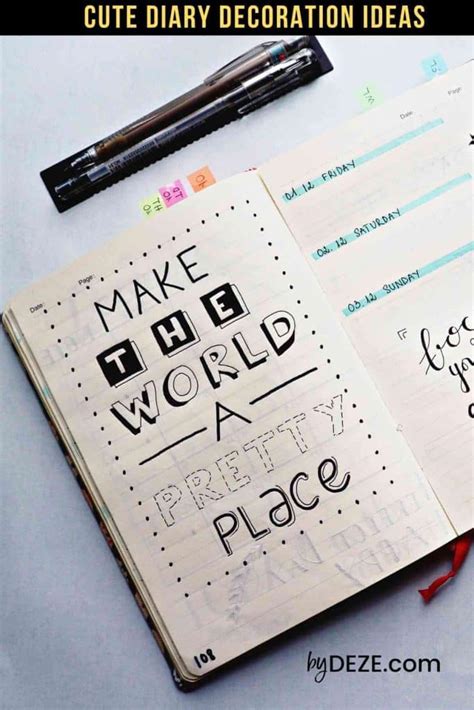 CUTE DIARY DECORATION IDEAS
Date: Page:
MAKE
THE
WORLD
A
PRETTY
PLACE
108
Date: Page:
01.12 FRIDAY
02.12 SATURDAY
03.12 SUNDAY
byDEZE.com